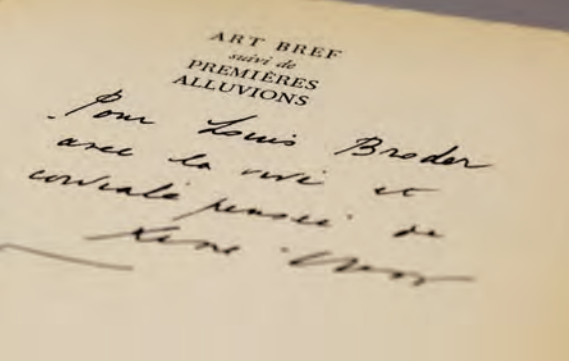 ART BREF
suivi de
PREMIÈRES
ALLUVIONS
Pour Louis Broder
avec la vive et
cordiale pensée de
René Char